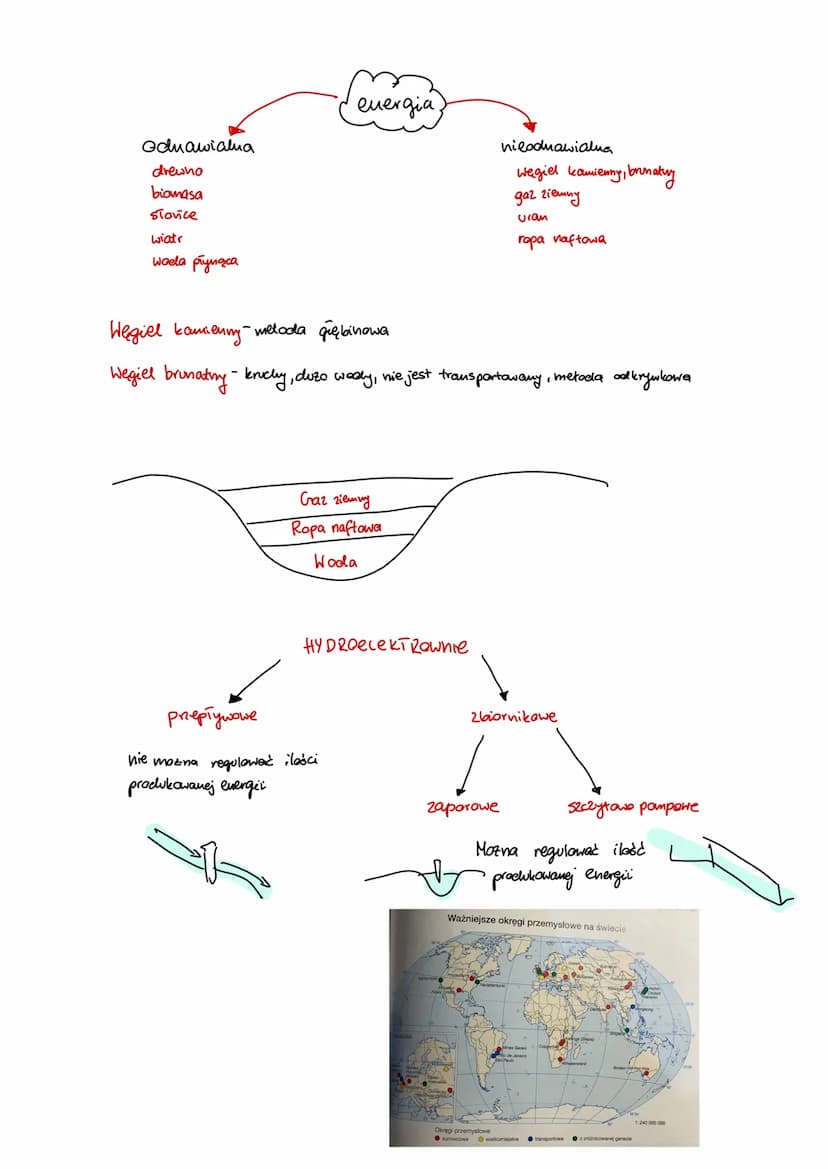 energia
odnawialna
drewno
biomasa
słońce
wiatr
woda płynąca
nieodnawialna
węgiel kamienny, brunatny
gaz ziemny
uran
ropa naftowa
Węgiel kamienny - metoda głębinowa
Węgiel brunatny - kruchy, dużo wody, nie jest transportowany, metoda odkrywkowa
Gaz ziemny
Ropa naftowa
Woda
HYDROELEKTROWNIE
przepływowe
nie można regulować ilości
produkowanej energii
zbiornikowe
zaporowe
szczytowo pompowe
Można regulować ilość
produkowanej energii
Ważniejsze okręgi przemysłowe na świecie
Minas Gerais
Rio de Janeiro
São Paulo
1:240 000 000
Okręgi przemysłowe
surowcowe
wielkomiejskie
transportowe
o zróżnicowanej genezie